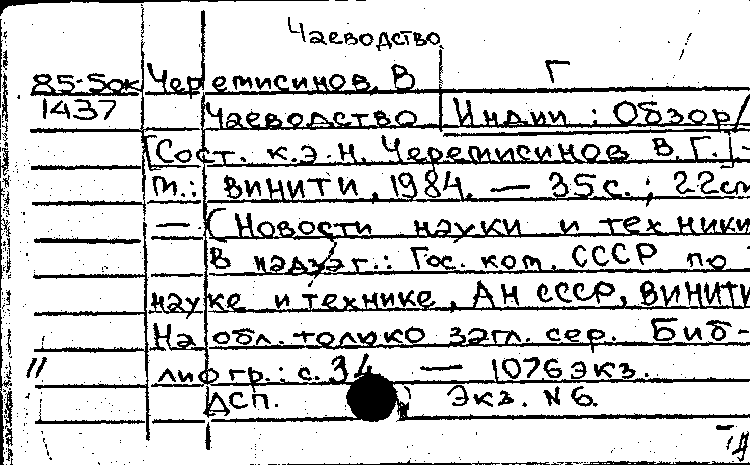 Чаеводство
85-5ок Черемисинов, В Г
1437 Чаеводство Индии : Обзор/
[Сост. к.э.н. Черемисинов В.Г.]-
м.: ВИНИТИ, 1984. — 35с.; 22см
— (Новости науки и техники
В надзаг.: Гос. ком. СССР по
науке и технике, АН СССР, ВИНИТИ
На обл. только загл. сер. Биб-
лиогр.: с. 34 — 1076 экз.
ДСП. Экз. N6.